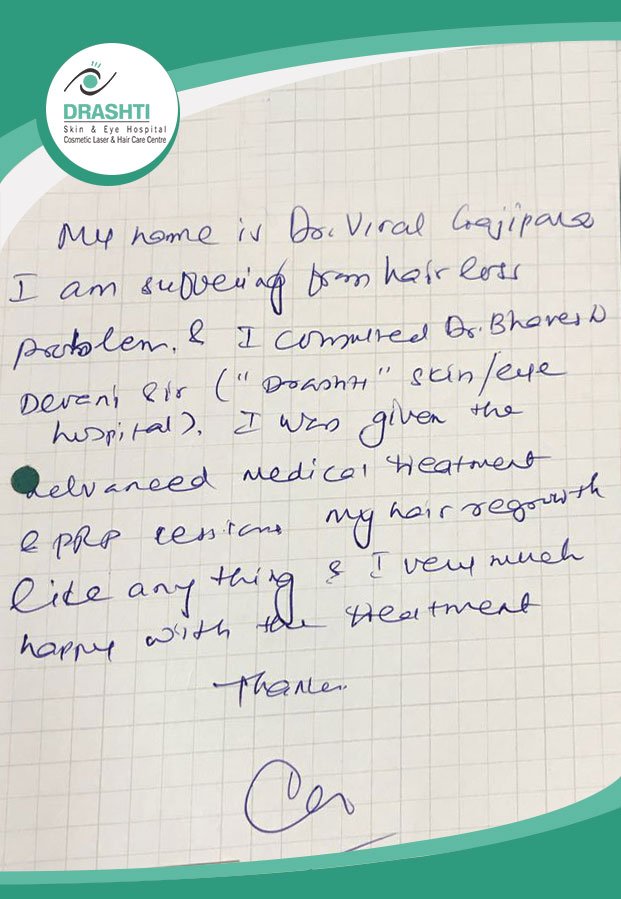 DRASHTI
Skin & Eye Hospital
Cosmetic Laser & Hair Care Centre
My name is Dr. Viral Gajipara
I am suffering from hair loss
problem. & I consulted Dr. Bhavesh
Devani sir ("Drashti" skin/eye
hospital). I was given the
advanced medical treatment
& PRP sessions my hair regrowth
like any thing & I very much
happy with the treatment
Thanks.